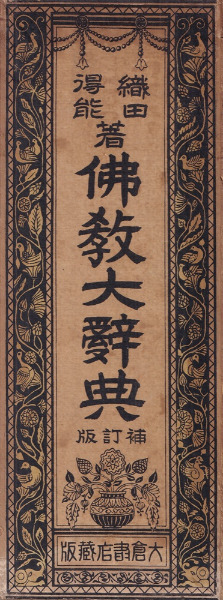 織田得能著
佛教大辭典
補訂版
大倉書店藏版